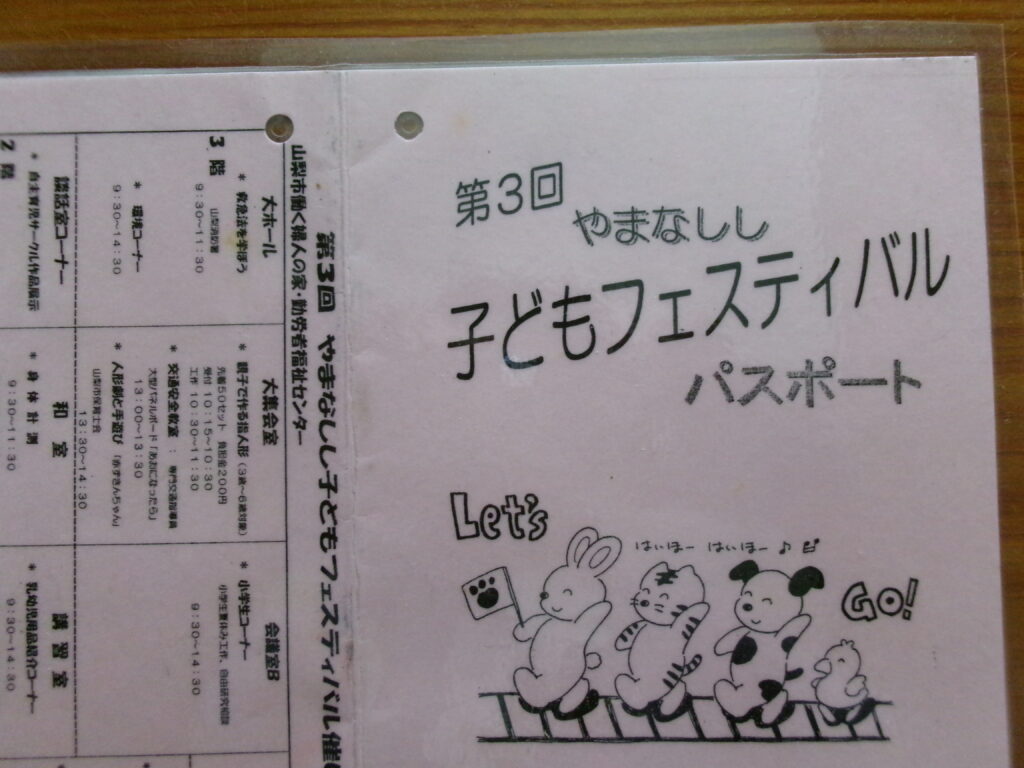 第3回
やまなしし
子どもフェスティバル
パスポート
Let's
はいほー はいほー♪
GO!
第3回 やまなしし子どもフェスティバル催
山梨市働く婦人の家・勤労者福祉センター
3階
大ホール
* 救急法を学ぼう
山梨消防署
9:30～11:30
* 環境コーナー
9:30～14:30
大集会室
* 親子で作る指人形(3歳～6歳対象)
先着50セット 負担金200円
受付 10:15～10:30
工作 10:30～11:30
* 交通安全教室 : 専門交通指導員
大型パネルボード「あおになったら」
13:00～13:30
* 人形劇と手遊び「赤ずきんちゃん」
山梨市保育士会
13:30～14:30
会議室B
* 小学生コーナー
小学生夏休み工作、自由研究相談
9:30～14:30
2階
談話室コーナー
* 自主育児サークル作品展示
和室
* 身体計測
9:30～11:30
講習室
* 乳幼児用品紹介コーナー
9:30～14:30